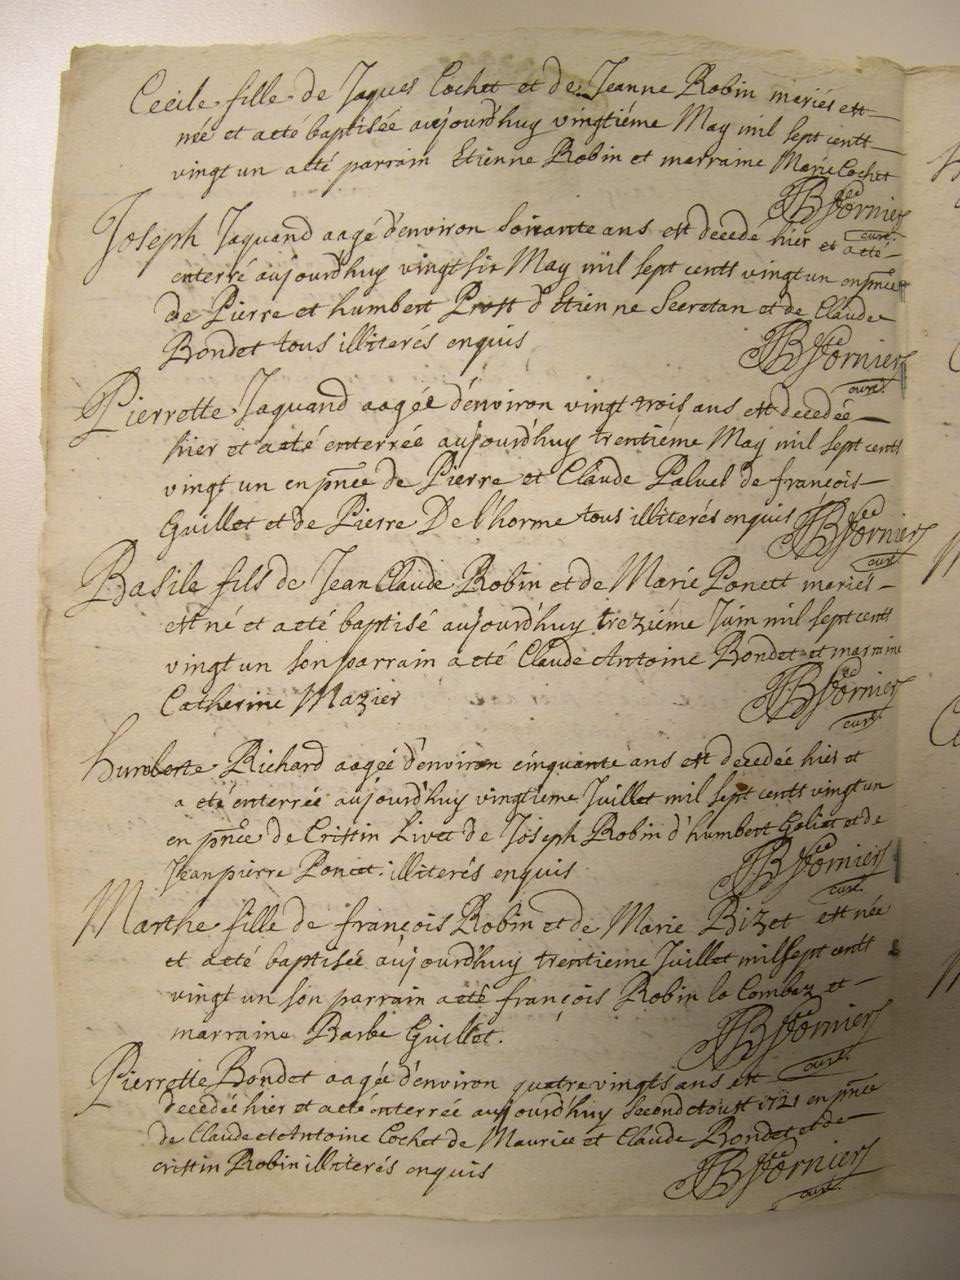 Cecile fille de Jaques Cochet et de Jeanne Robin mariés est
née et a eté baptisée aujourd'huy vingtiéme May mil sept centt
vingt un a eté parrain Etienne Robin et marraine Marie Cochet
JB Fornier
curé
Joseph Jaquand aagé d'environ soixante ans est decedé hier et a eté
enterré aujourd'huy vingt six May mil sept centt vingt un en pnce
de Pierre et humbert Prost d'Etienne Secretan et de Claude
Bondet tous illiterés enquis
JB Fornier
curé
Pierrette Jaquand aagée d'environ vingt trois ans est decedée
hier et a eté enterrée aujourd'huy trentiéme May mil sept centt
vingt un en pnce de Pierre et Claude Paluel de françois
Guillet et de Pierre De l'horme tous illiterés enquis
JB Fornier
curé
Basile fils de Jean Claude Robin et de Marie Ponctt mariés
est né et a eté baptisé aujourd'huy treziéme Juin mil sept centt
vingt un son parrain a eté Claude Antoine Bondet et marraine
Catherine Mazier
JB Fornier
curé
humberte Richard aagée d'environ cinquante ans est decedée hier et
a eté enterrée aujourd'huy vingtieme Juillet mil sept centt vingt un
en pnce de Cristin Livet de Joseph Robin d'humbert Goliet et de
Jeanpierre Poncet illiterés enquis
JB Fornier
curé
Marthe fille de françois Robin et de Marie Bizet est née
et a eté baptisée aujourd'huy trentieme Juillet mil sept centt
vingt un son parrain a eté françois Robin la Combaz et
marraine Barbe Guillet.
JB Fornier
curé
Pierrette Bondet aagée d'environ quatre vingts ans est
decedée hier et a eté enterrée aujourd'huy second aoust 1721 en pnce
de Claude et Antoine Cochet de Maurice et Claude Bondet et de
cristin Robin illiterés enquis
JB Fornier
curé